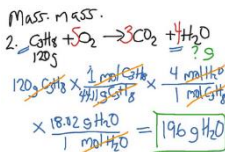 Mass. mass.
2. C₃H₈ + 5O₂ → 3CO₂ + 4H₂O
120g ? g
120g C₃H₈ × 1 mol C₃H₈ / 44.11g C₃H₈ × 4 mol H₂O / 1 mol C₃H₈
× 18.02 g H₂O / 1 mol H₂O = 196 g H₂O